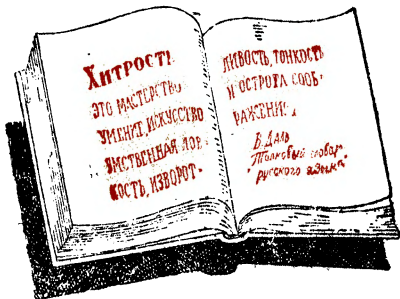 Хитрость
это мастерство
умение, искусство
умственная лов-
кость, изворот-
ливость, тонкость
и острота сооб-
ражения.
В. Даль
"Толковый словарь
русского языка"